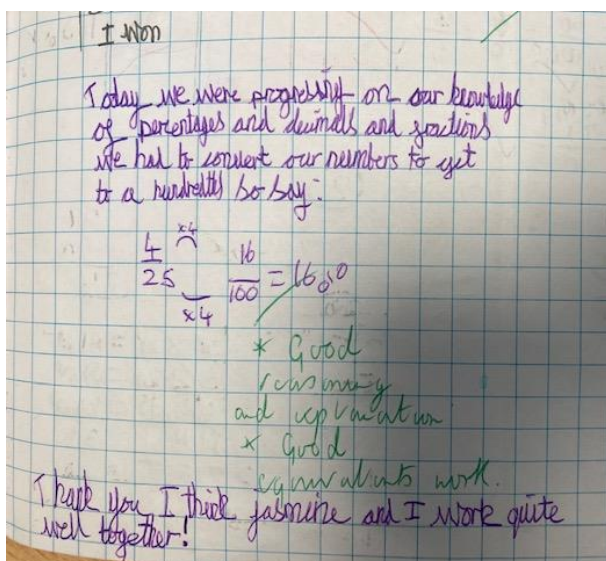 I won
Today we were progressing on our knowledge
of percentages and decimals and fractions
we had to convert our numbers to get
to a hundredths so say:
x4
4/25 16/100 = 16%
x4
* Good
reasoning
and explanation
* Good
equivalents work.
Thank you, I think jasmine and I work quite
well together!